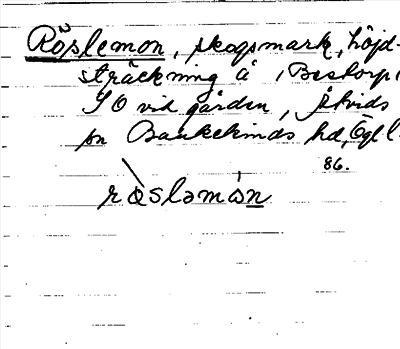 Röslemon, skogsmark, höjd-
sträckning å Bestorp
SO vid gården,
sn Bankekinds hd, Ögl.
86.
rösləmon